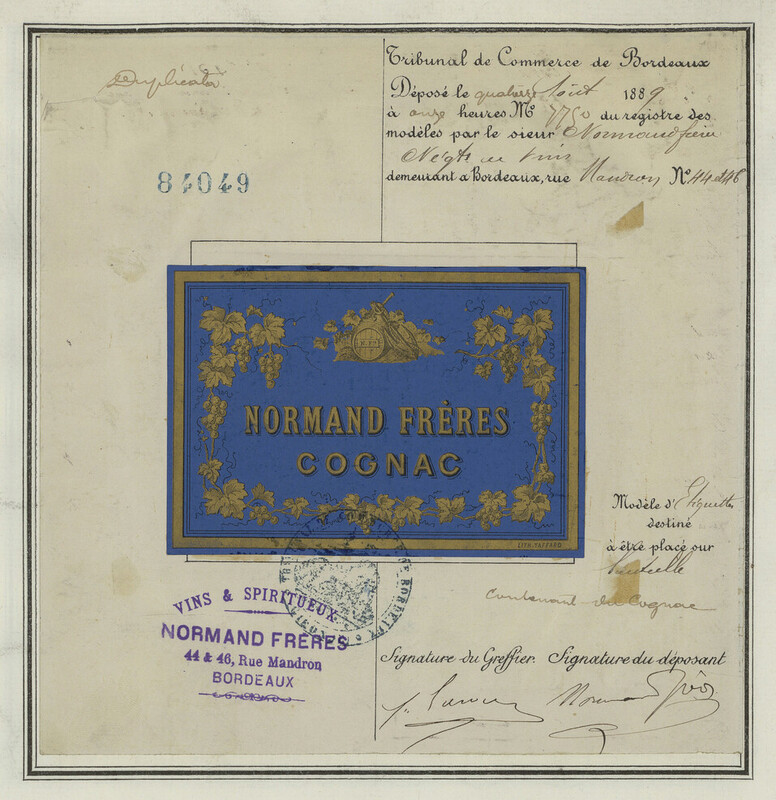 Duplicata
Tribunal de Commerce de Bordeaux
Déposé le quatorze Août 1889
à onze heures No 7750 du registre des
modèles par le sieur Normand frères
Négts en Vins
demeurant à Bordeaux, rue Mandron No 44 et 46
84049
NORMAND FRÈRES
COGNAC
LITH. TAFFARD
Modèle d'Etiquette
destiné
à être placé sur
bouteille
contenant du Cognac
TRIBUNAL DE COMMERCE DE BORDEAUX
VINS & SPIRITUEUX
NORMAND FRÈRES
44 & 46, Rue Mandron
BORDEAUX
Signature du Greffier. Signature du déposant
Normand frères